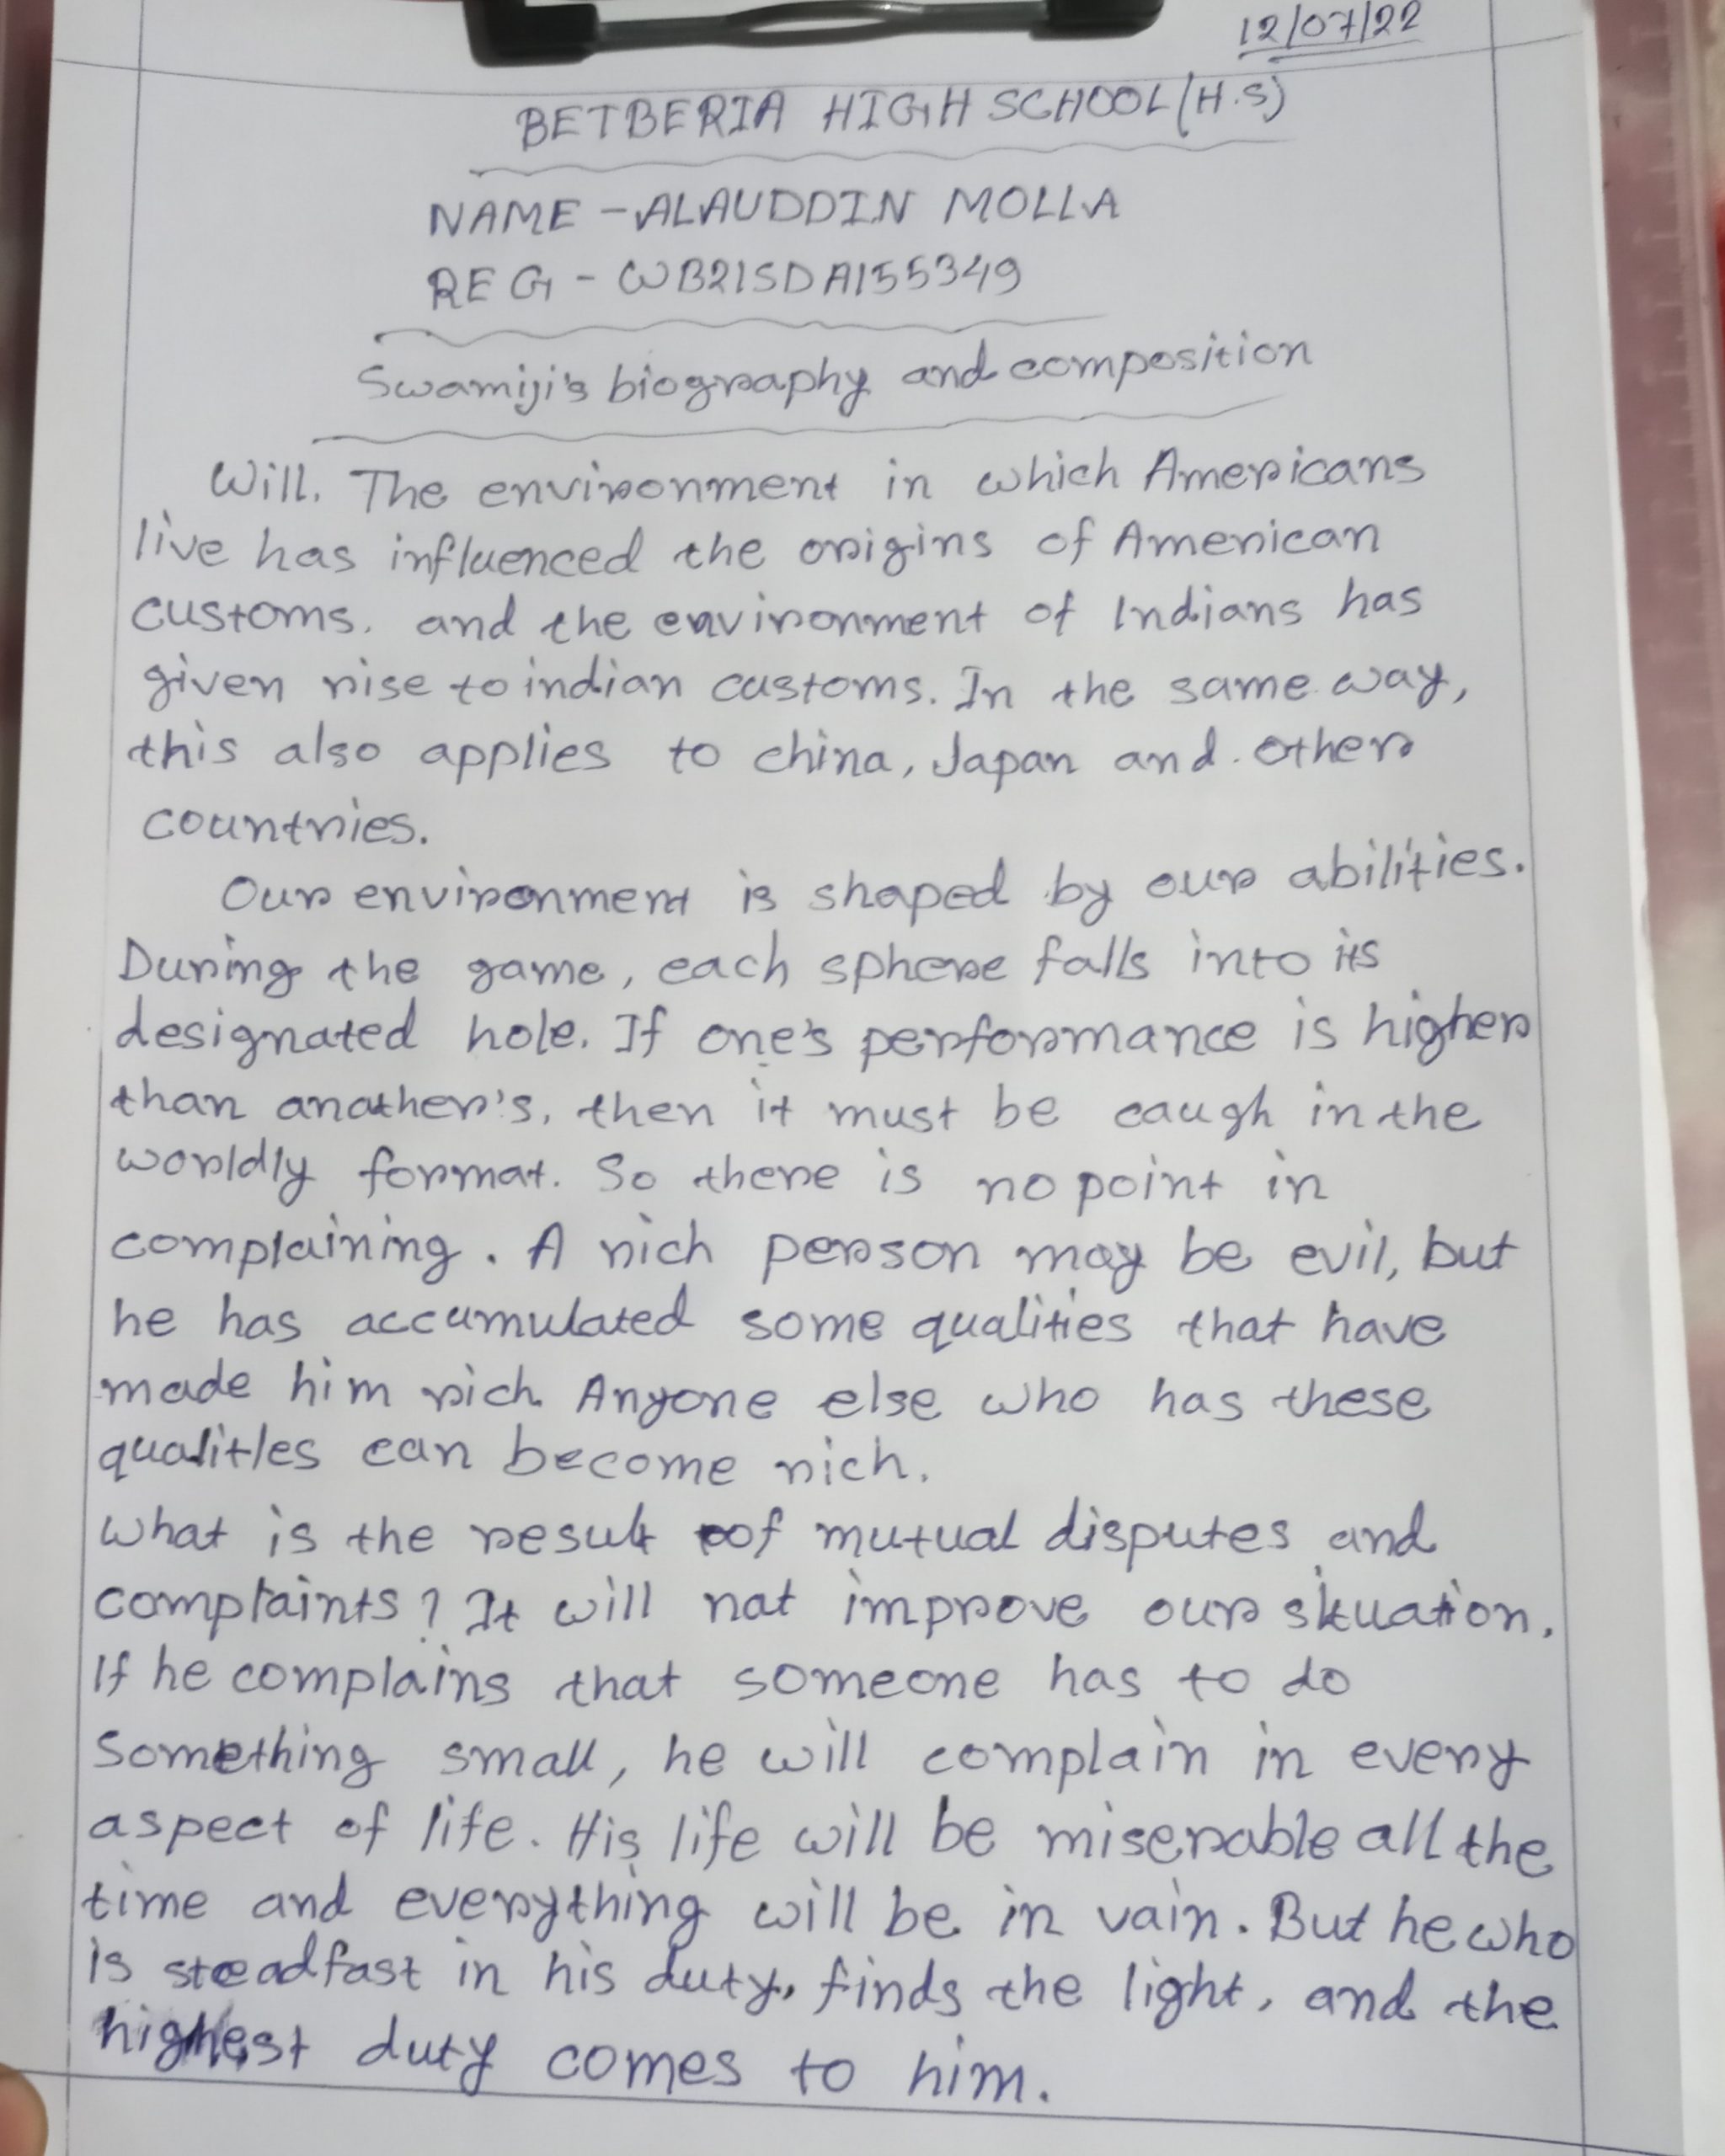 12/07/22
BETBERIA HIGH SCHOOL (H.S)
NAME - ALAUDDIN MOLLA
REG - WB21SDA155349
Swamiji's biography and composition
Will. The environment in which Americans
live has influenced the origins of American
customs. and the environment of Indians has
given rise to indian customs. In the same way,
this also applies to china, Japan and. other
countries.
Our environment is shaped by our abilities.
During the game, each sphere falls into its
designated hole. If one's performance is higher
than anather's, then it must be caugh in the
worldly format. So there is no point in
complaining. A rich person may be evil, but
he has accumulated some qualities that have
made him rich. Anyone else who has these
qualitles can become rich.
What is the result of mutual disputes and
complaints? It will nat improve our situation.
If he complains that someone has to do
Something small, he will complain in every
aspect of life. His life will be miserable all the
time and everything will be in vain. But he who
is steadfast in his duty, finds the light, and the
highest duty comes to him.